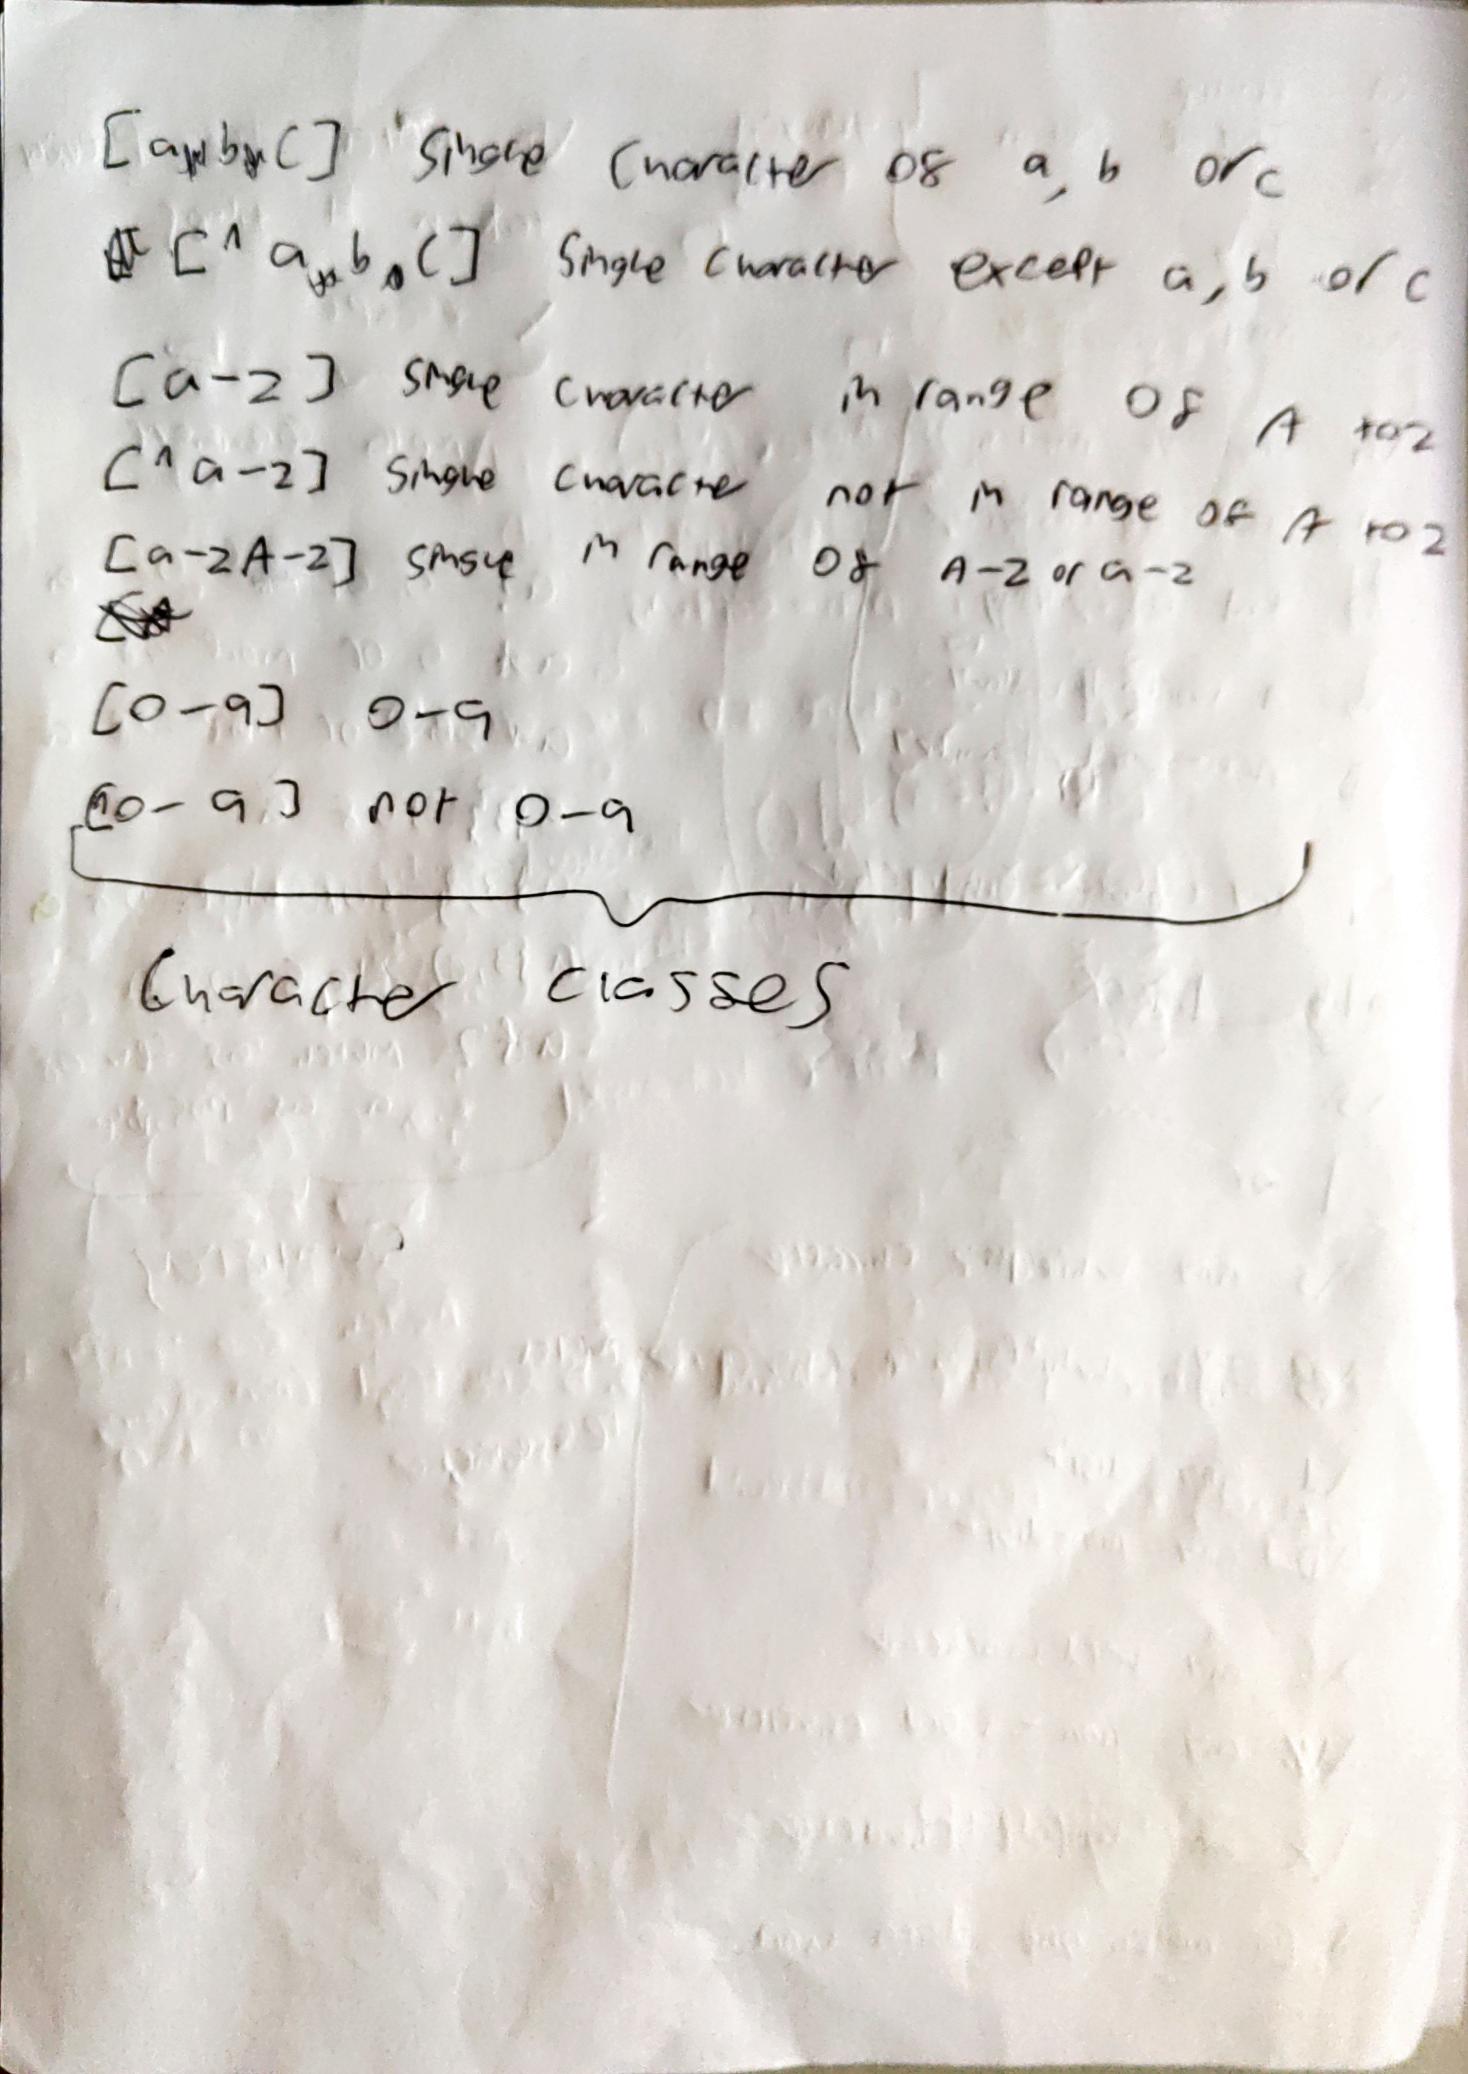 [abc] single character of a, b or c
[^abc] single character except a, b or c
[a-z] single character in range of A to z
[^a-z] single character not in range of A to z
[a-zA-Z] single in range of A-Z or a-z
[0-9] 0-9
[^0-9] not 0-9
Character classes